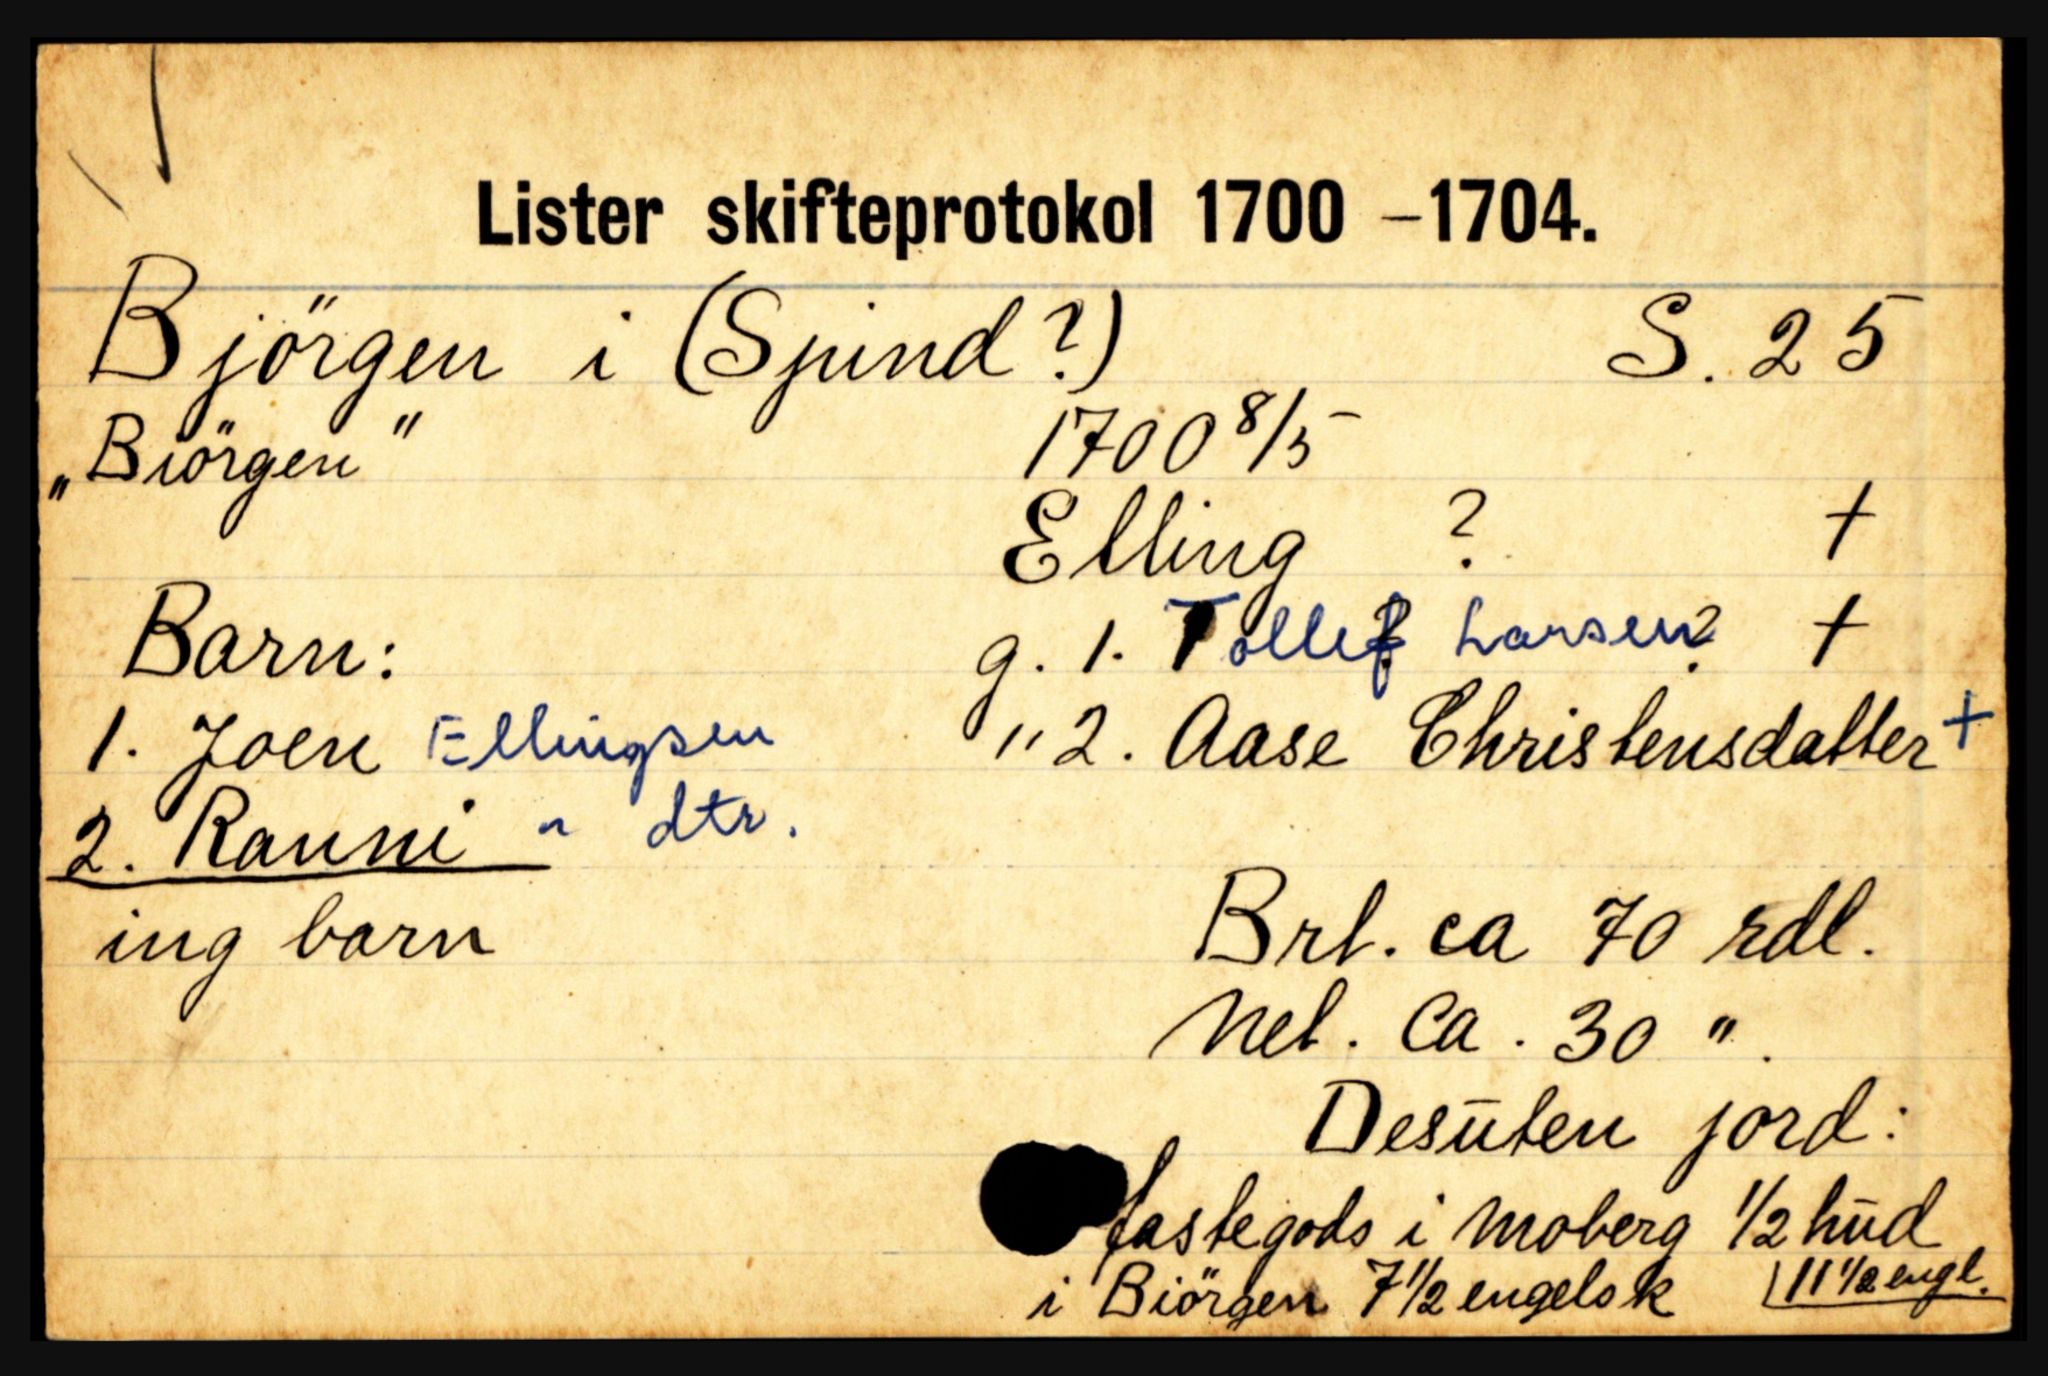 Lister skifteprotokol 1700 – 1704.
Björgen i (Spind?) S. 25
„Biörgen" 1700 8/5
Elling ? †
Barn: g. 1. Tollef Larsen ? †
1. Joen Ellingsen " 2. Aase Christensdatter +
2. Ranni " dtr.
ing barn Brt. ca 70 rdl.
Net. Ca. 30 ".
Desūten jord:
fastegods i Moberg 1/2 hūd
i Biörgen 7 1/2 engelsk 11 1/2 engl.